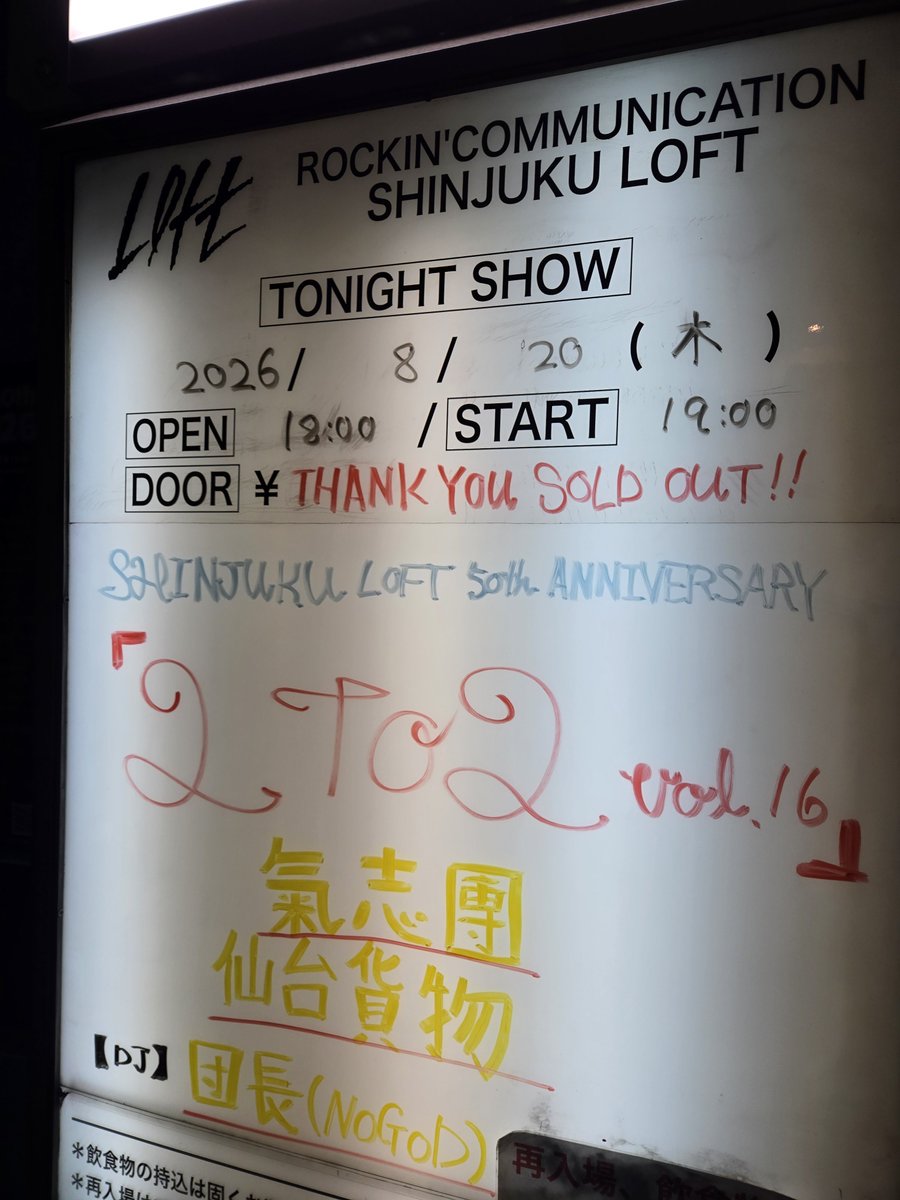 Loft
ROCKIN'COMMUNICATION
SHINJUKU LOFT
TONIGHT SHOW
2026/ 8/ 20 (木)
OPEN 18:00 / START 19:00
DOOR ¥ THANK YOU SOLD OUT!!
SHINJUKU LOFT 50th ANNIVERSARY
「2 To 2 vol.16」
氣志團
仙台貨物
【DJ】 団長(NoGoD)
*飲食物の持込は固く
*再入場は
再入場、飲食